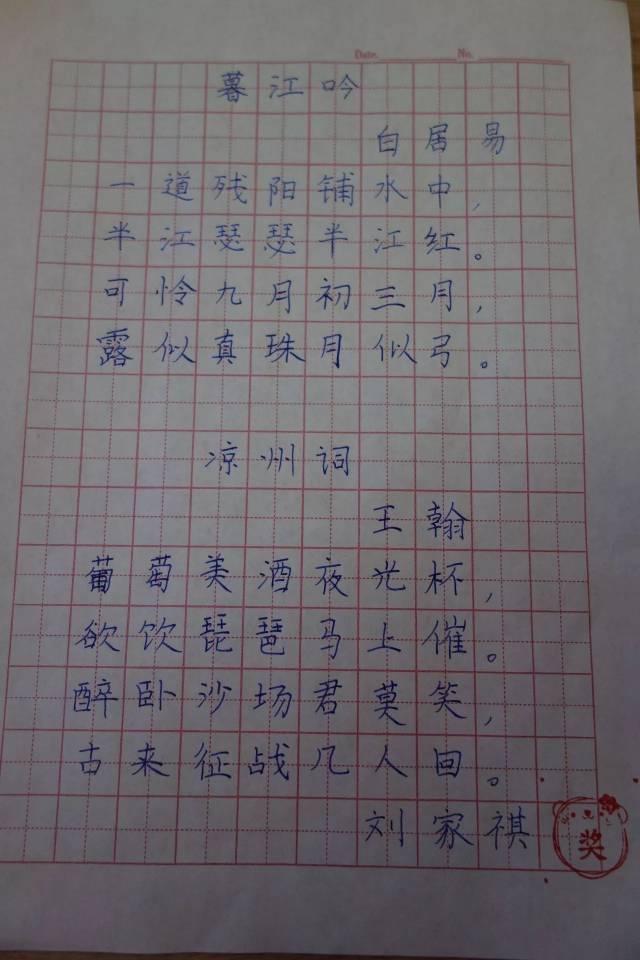 Date. No.
暮江吟
白居易
一道残阳铺水中,
半江瑟瑟半江红。
可怜九月初三月,
露似真珠月似弓。
凉州词
王翰
葡萄美酒夜光杯,
欲饮琵琶马上催。
醉卧沙场君莫笑,
古来征战几人回。
刘家祺
奖